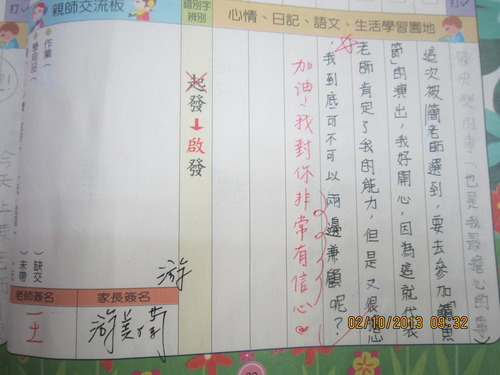 心情、日記、語文、生活學習園地
錯別字辨別
親師交流板
打
最快樂的事(也是我最擔心的事)
這次被簡老師選到,要去參加"魚
節"的演出,我好開心,因為這就代表
老師肯定了我的能力,但是又很心
,我到底可不可以兩邊兼顧呢?
加油!我對你非常有信心
起發→啟發
作業(
學用品(
)缺交
)未帶
老師簽名
家長簽名
王
游
游美
今天上
02/10/2013 09:32